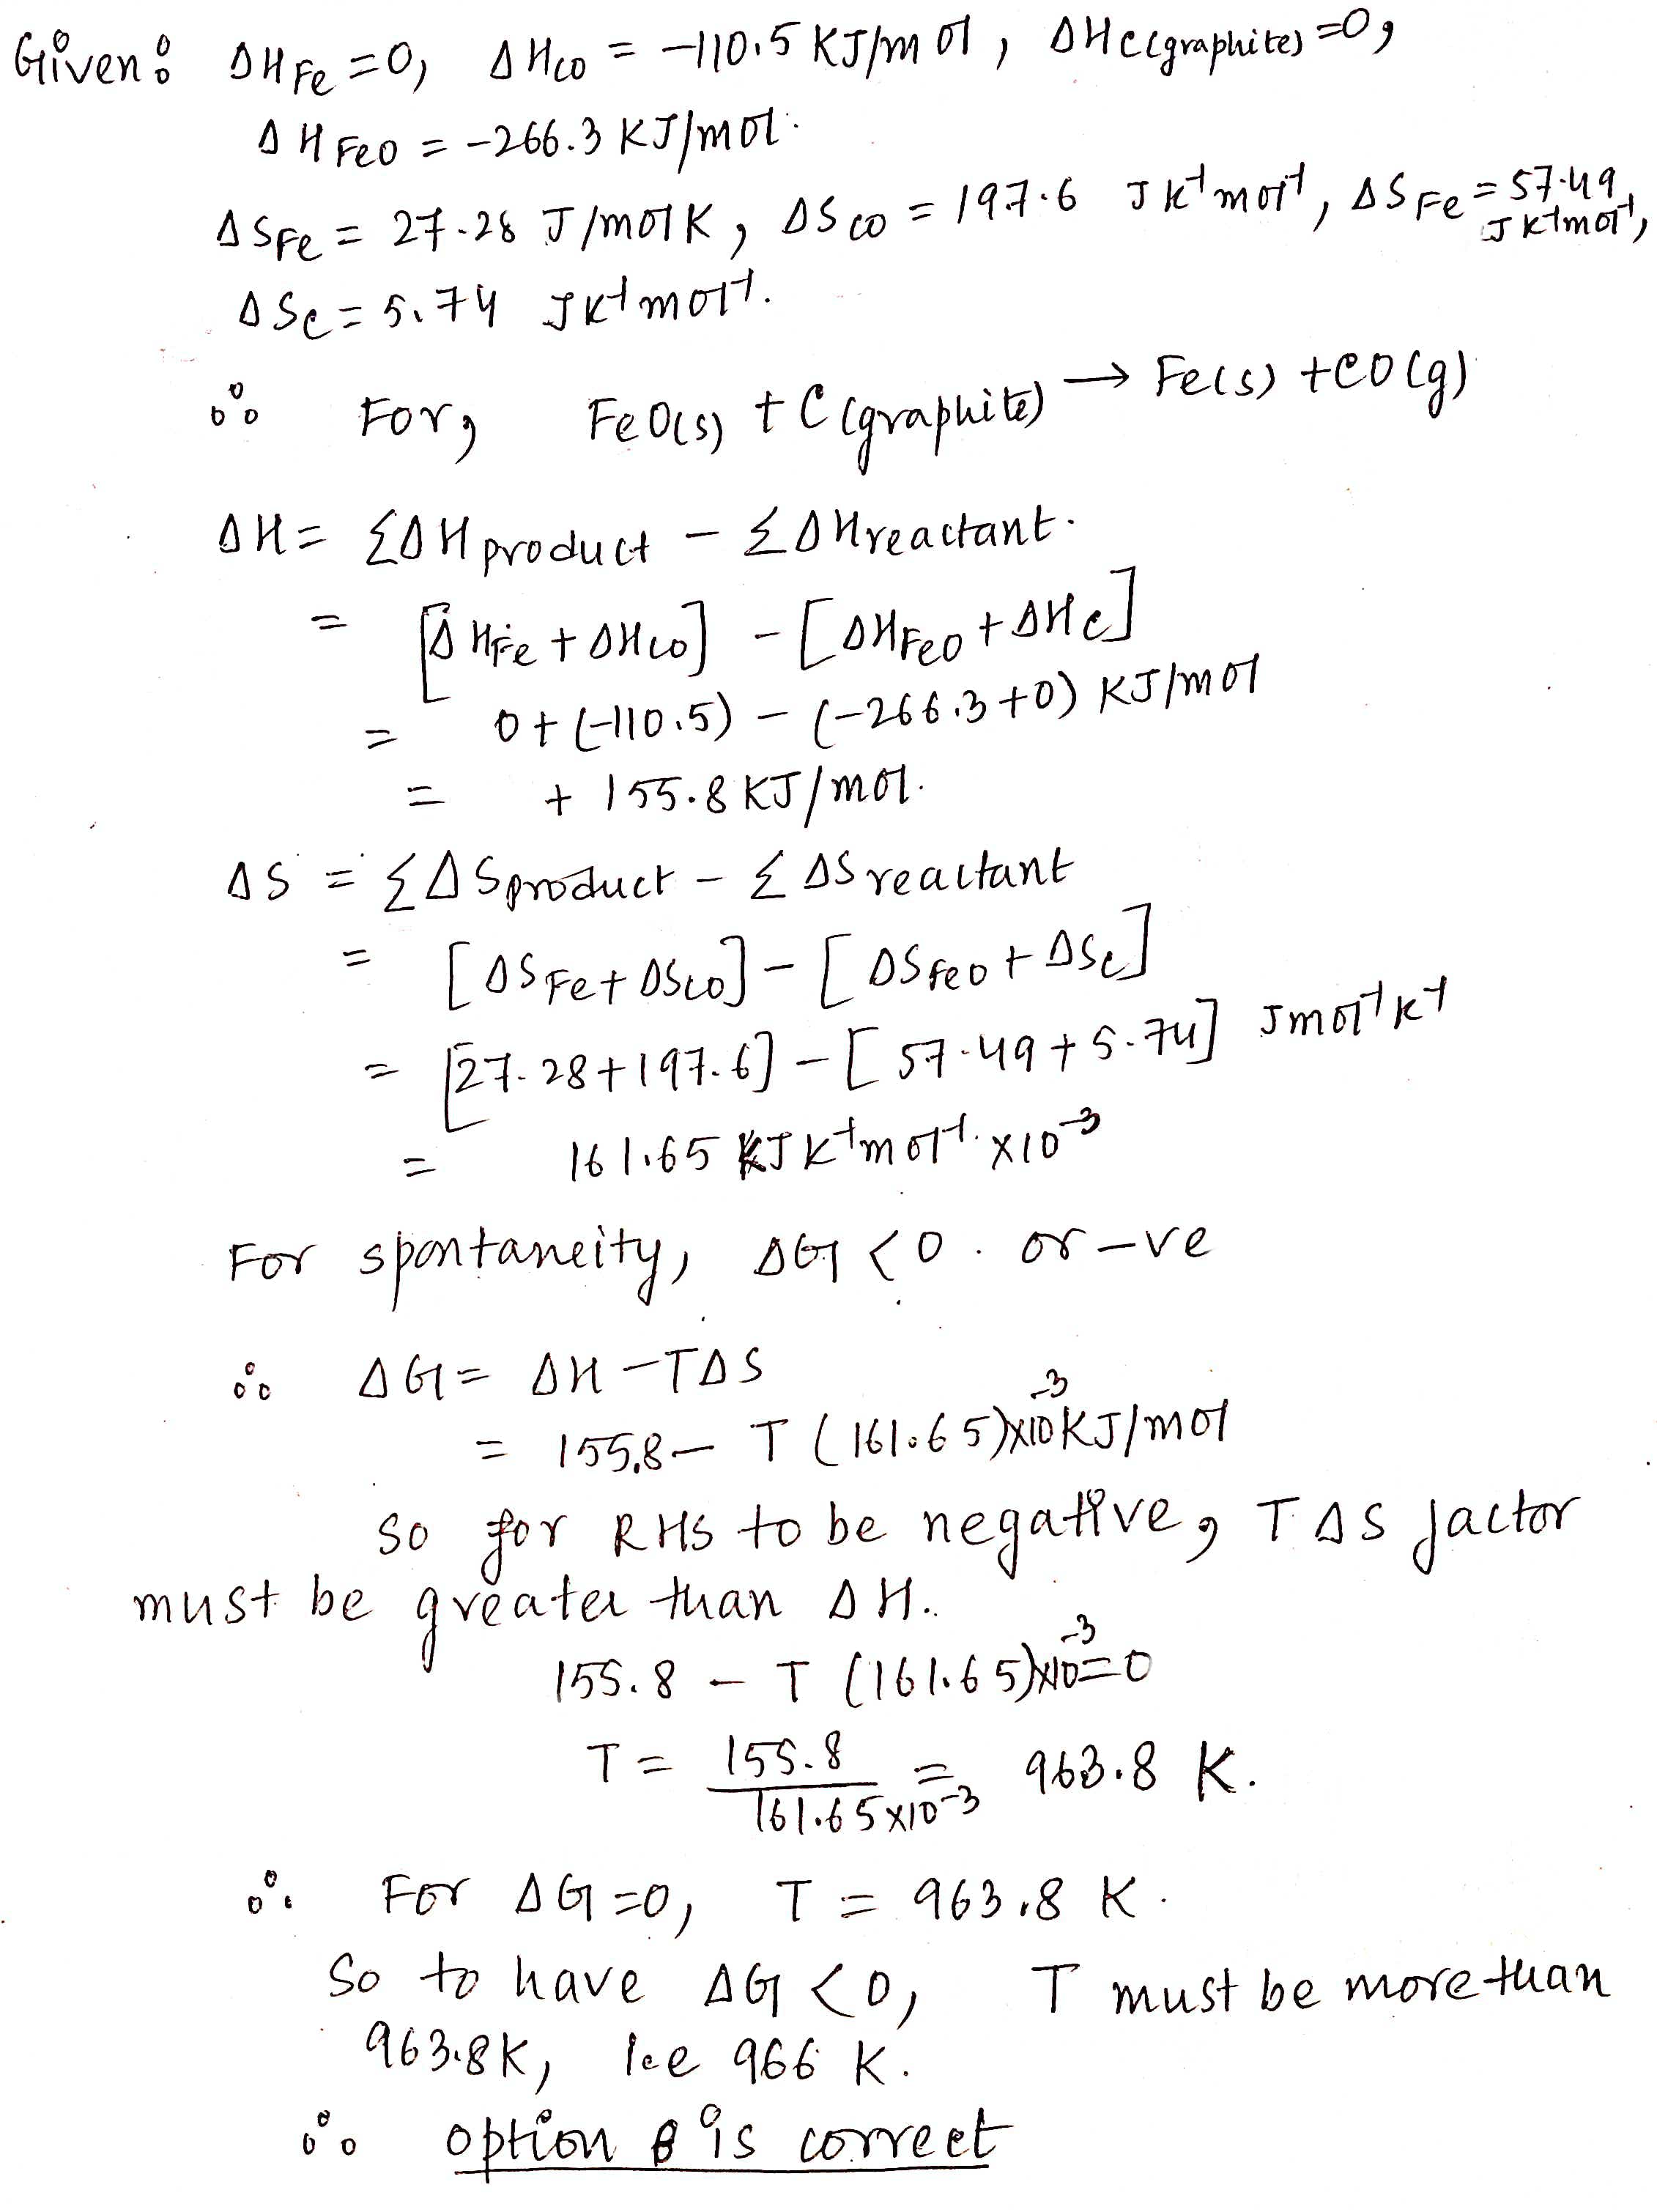 Given: ΔH Fe = 0, ΔH CO = -110.5 KJ/mol, ΔH C(graphite) = 0,
ΔH FeO = -266.3 KJ/mol.
ΔS Fe = 27.28 J/mol K, ΔS CO = 197.6 J K⁻¹ mol⁻¹, ΔS Fe = 57.49 J K⁻¹ mol⁻¹,
ΔS C = 5.74 J K⁻¹ mol⁻¹.
∴ For, FeO(s) + C(graphite) → Fe(s) + CO(g)
ΔH = ΣΔH product - ΣΔH reactant.
= [ΔH Fe + ΔH CO] - [ΔH FeO + ΔH C]
= 0 + (-110.5) - (-266.3 + 0) KJ/mol
= + 155.8 KJ/mol.
ΔS = ΣΔS product - ΣΔS reactant
= [ΔS Fe + ΔS CO] - [ΔS FeO + ΔS C]
= [27.28 + 197.6] - [57.49 + 5.74] J mol⁻¹ K⁻¹
= 161.65 KJ K⁻¹ mol⁻¹. × 10⁻³
For spontaneity, ΔG < 0. or -ve
∴ ΔG = ΔH - TΔS
= 155.8 - T (161.65)×10⁻³ KJ/mol
so for RHS to be negative, TΔS factor
must be greater than ΔH.
155.8 - T (161.65)×10⁻³ = 0
T = 155.8 / 161.65×10⁻³ = 963.8 K.
∴ For ΔG = 0, T = 963.8 K.
So to have ΔG < 0, T must be more than
963.8K, i.e 966 K.
∴ option B is correct